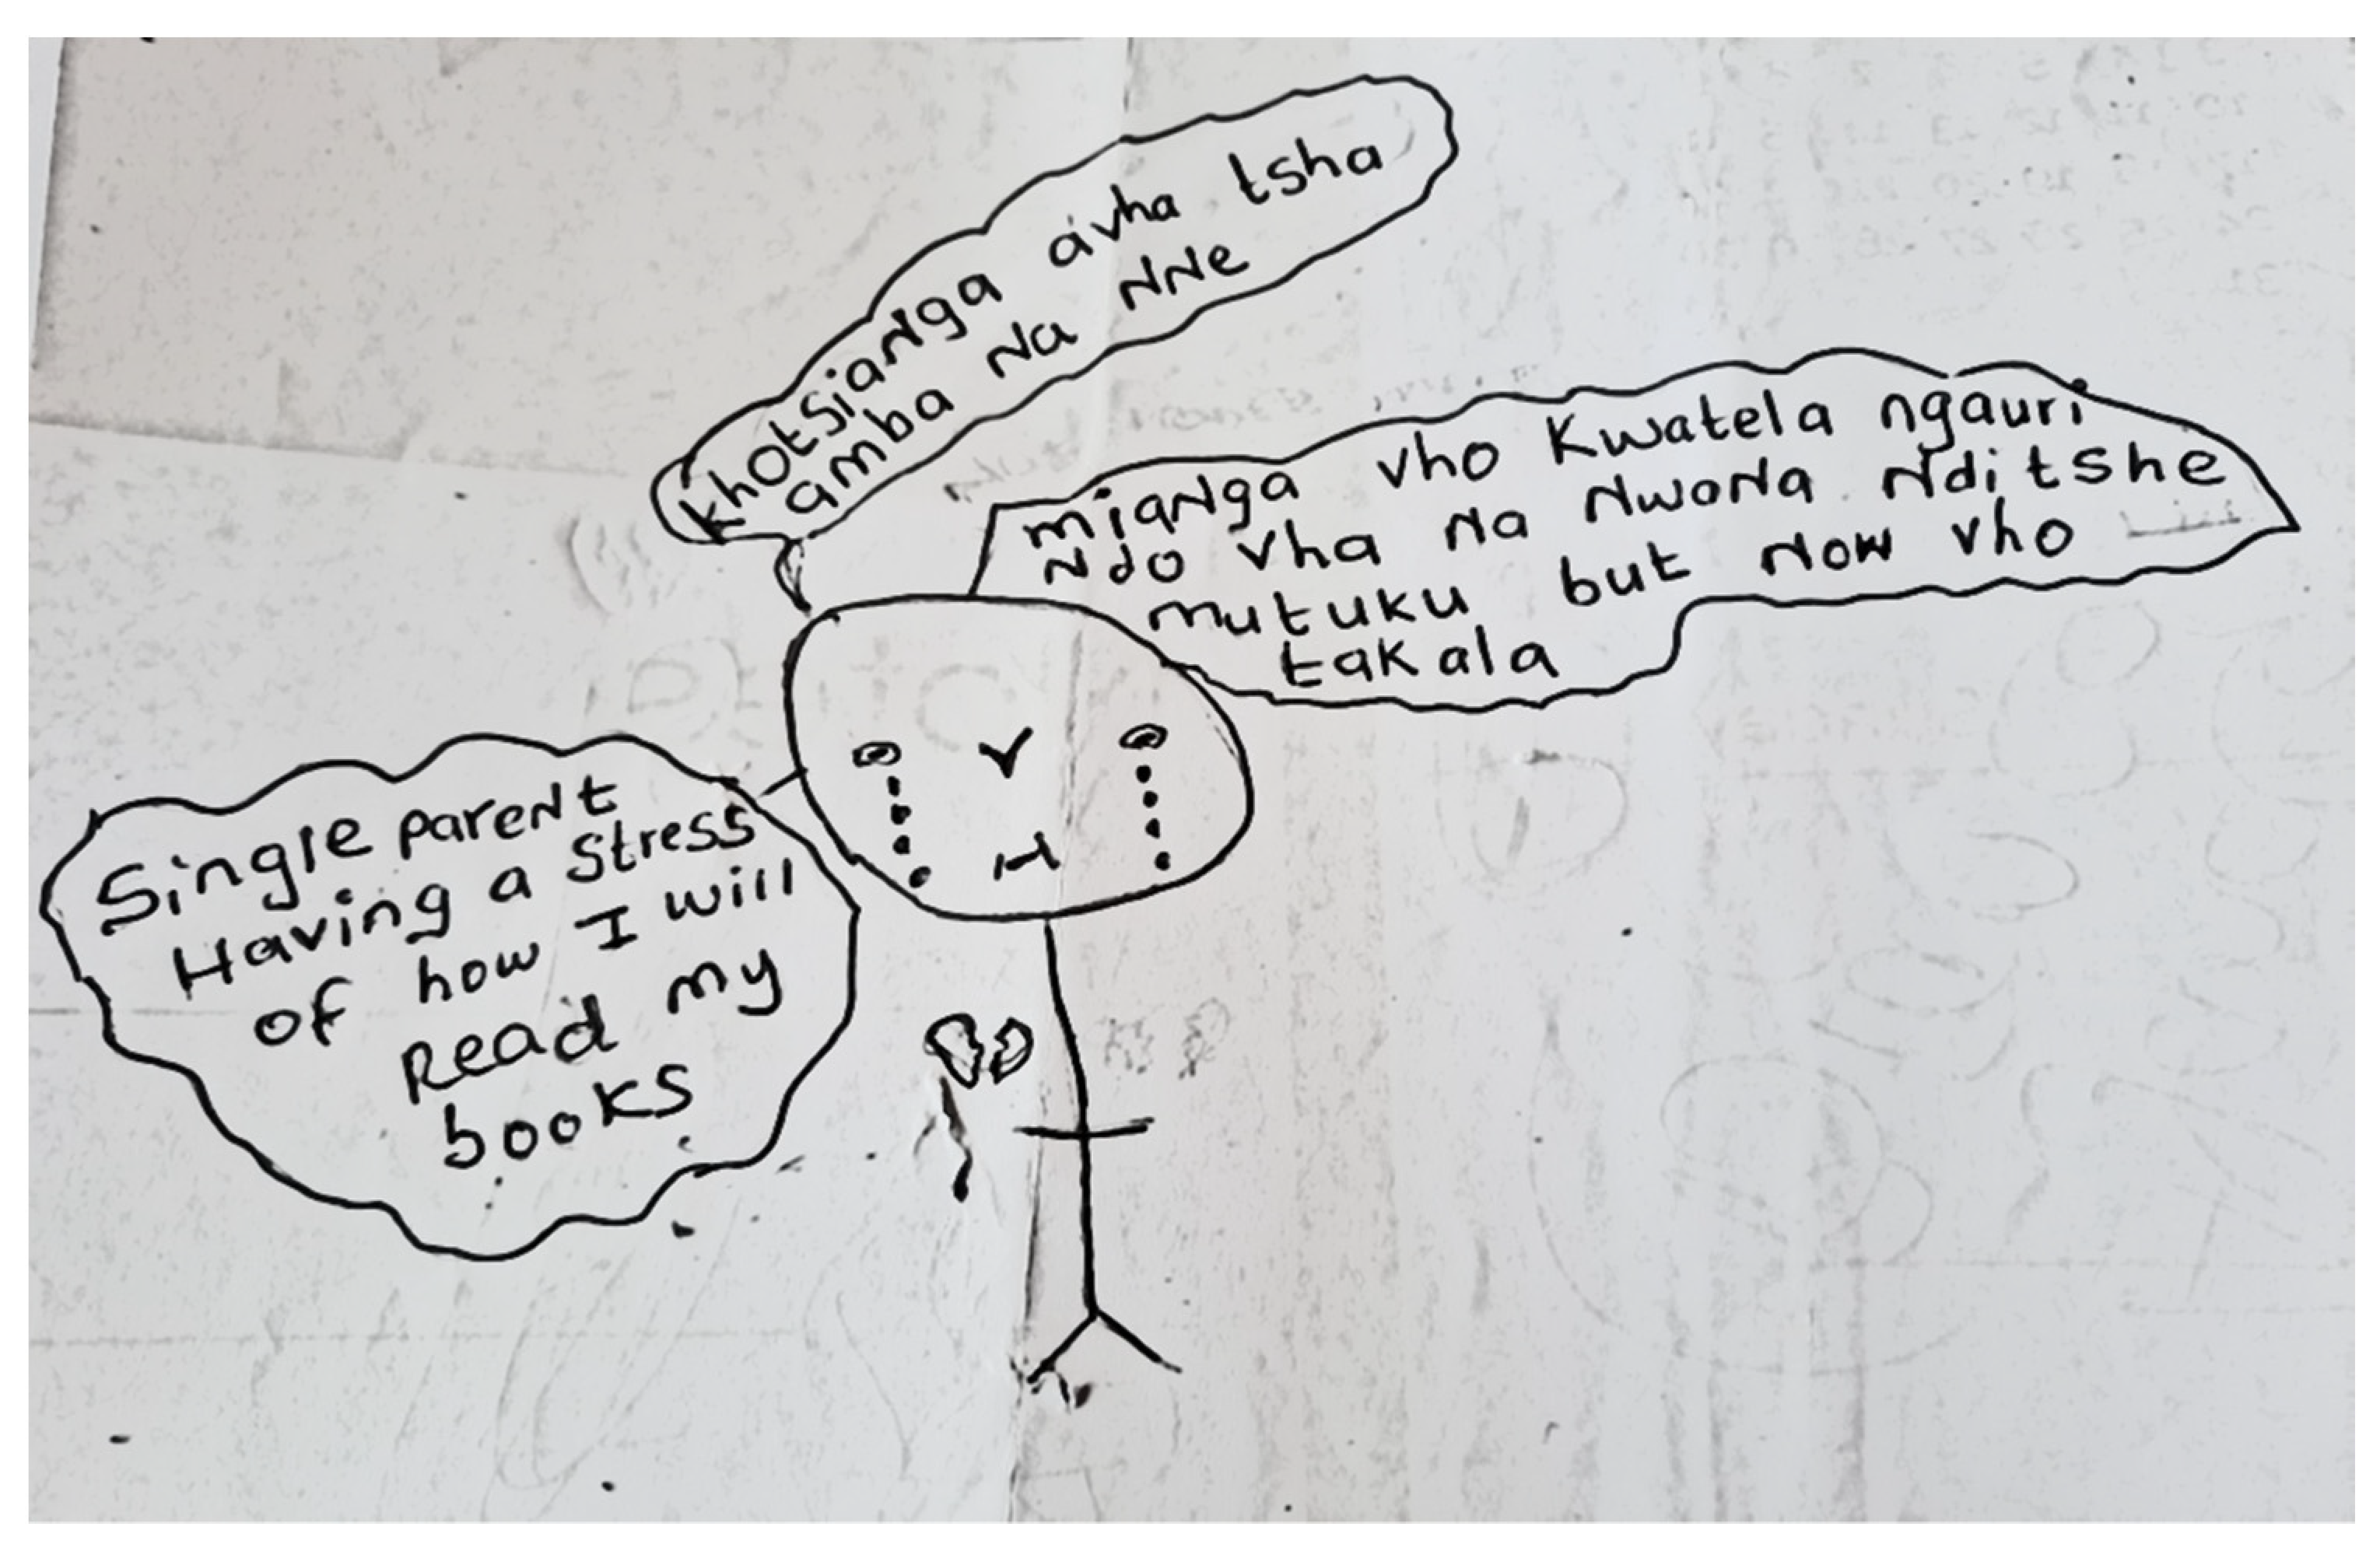 khotsianga aivha tsha
amba na nne
mianga vho kwatela ngauri
ndo vha na nwana ndi tshe
mutuku but now vho
takala
Single parent
Having a stress
of how I will
Read my
books